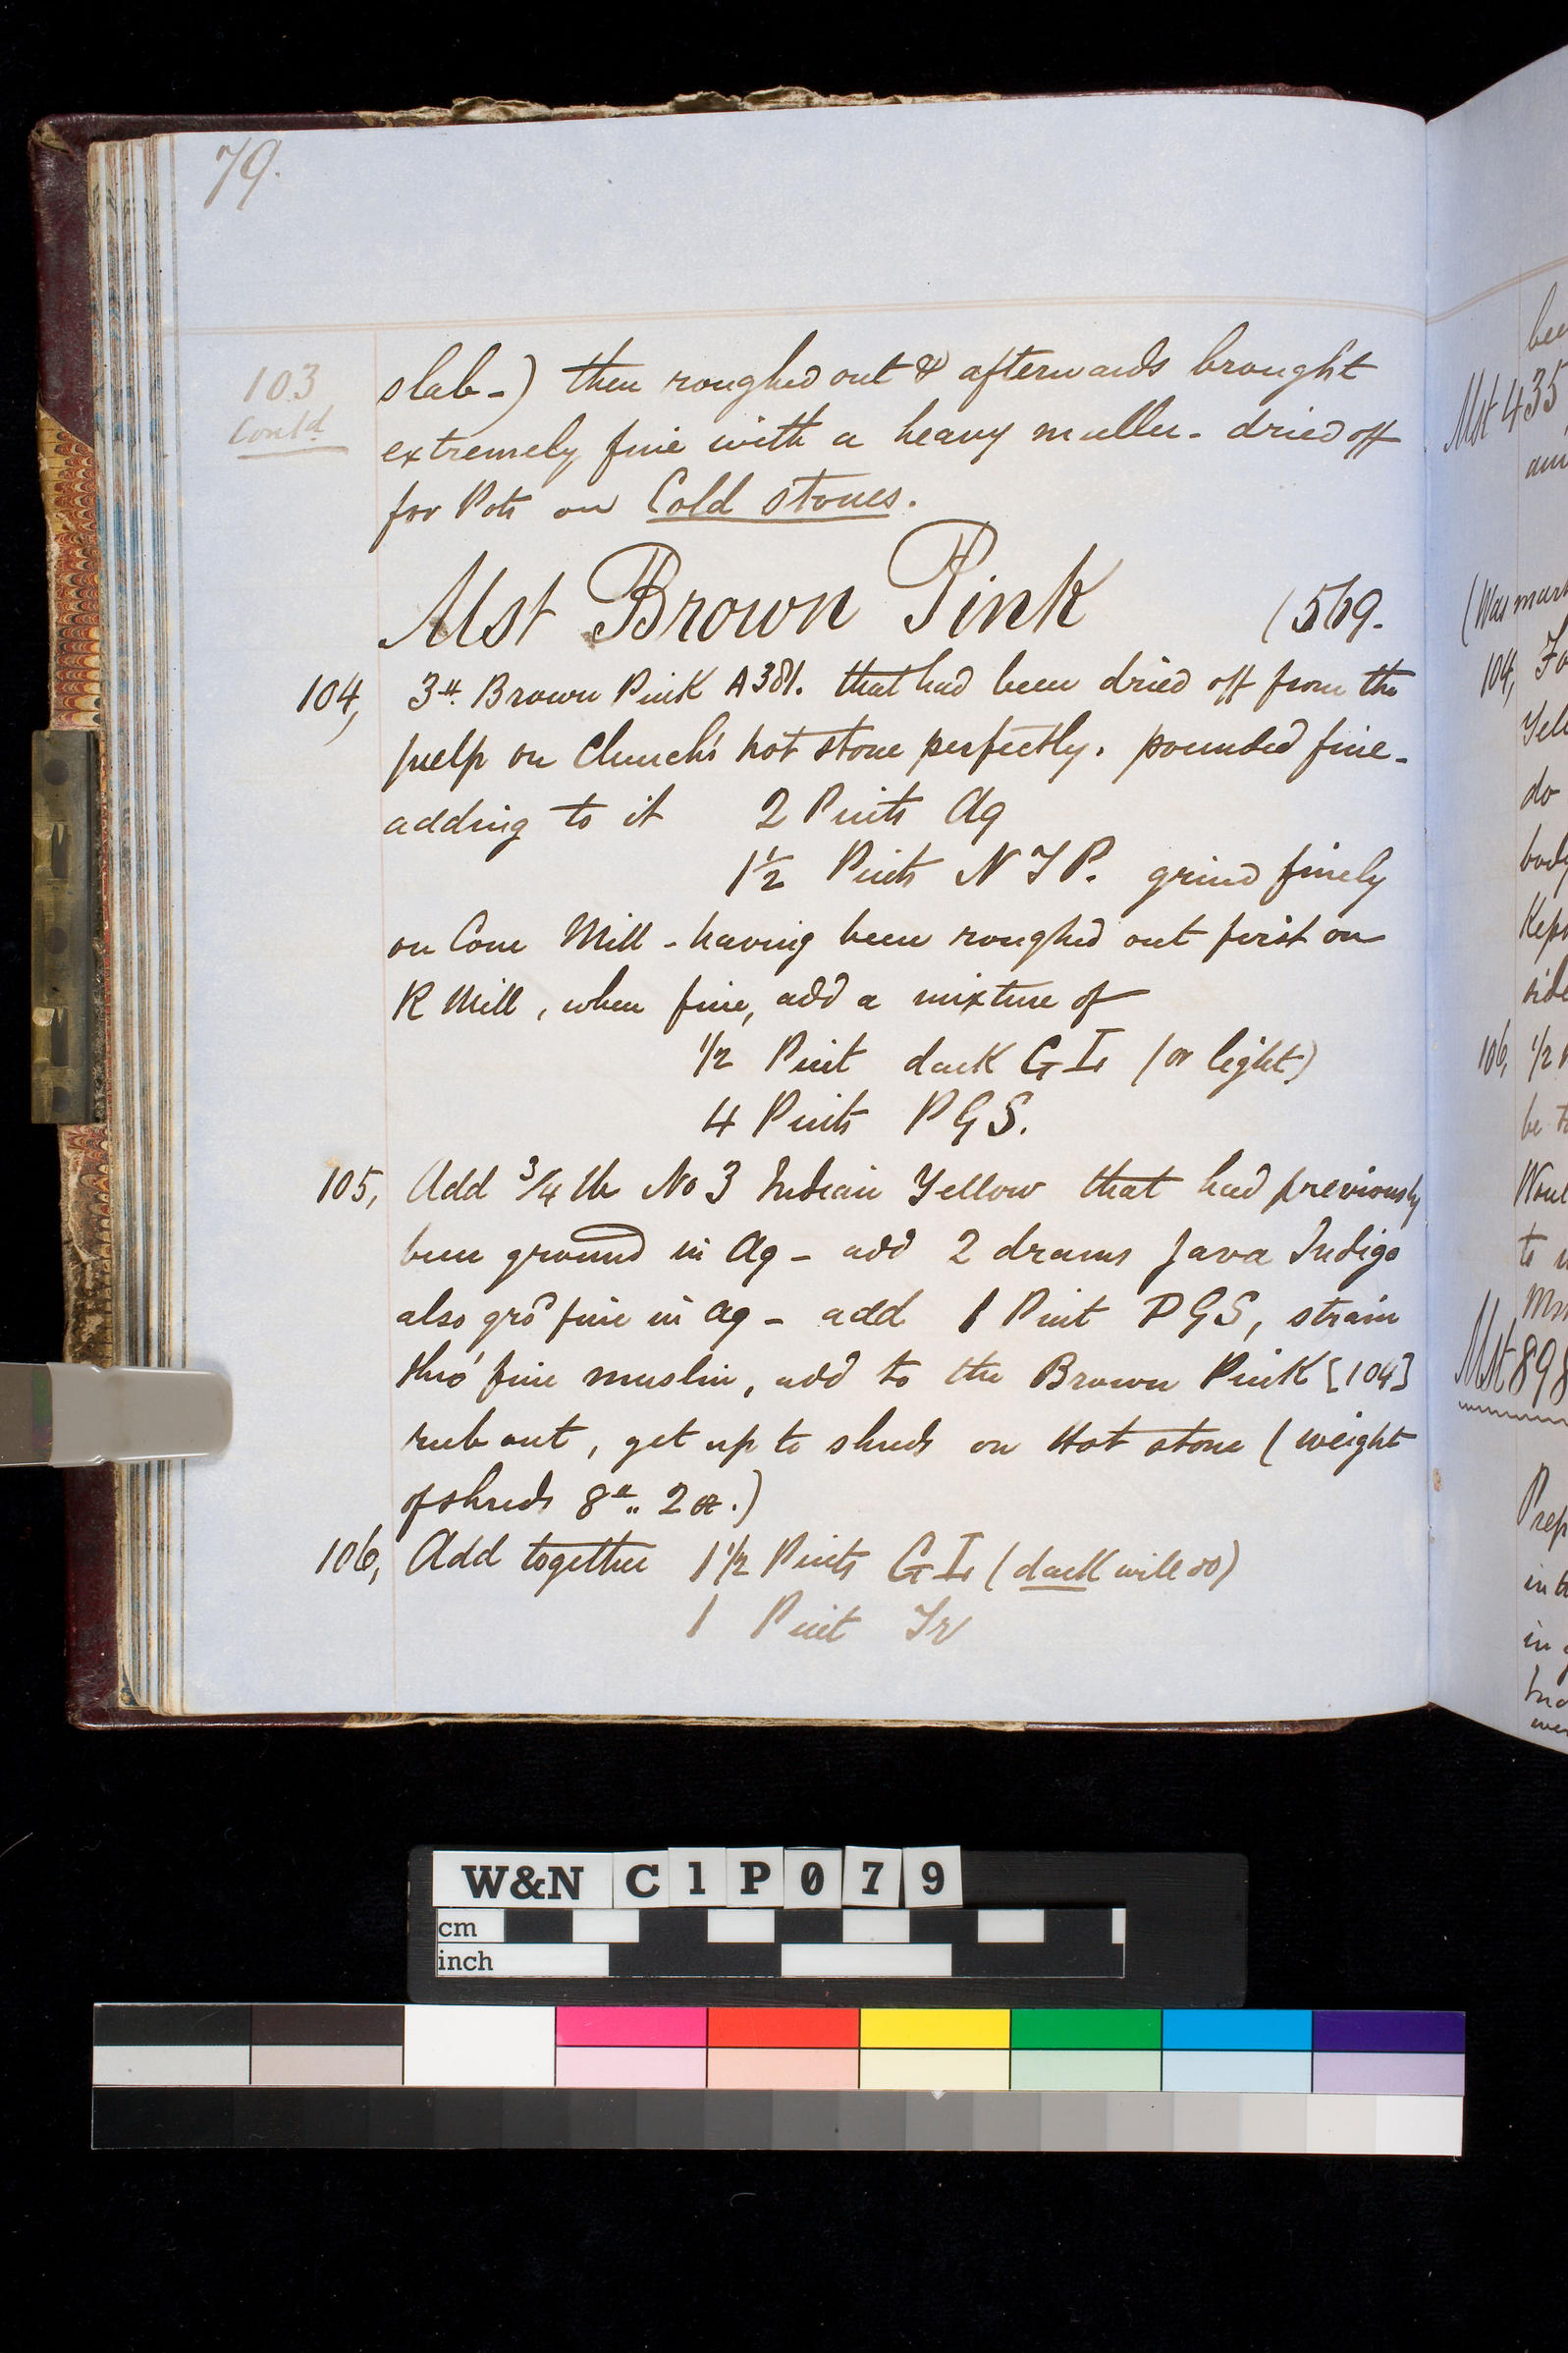 79.
103 slab-) then roughed out & afterwards brought
Contd. extremely fine with a heavy muller - dried off
for Pots on Cold stones.
Mst Brown Pink (569.
104, 3 lb. Brown Pink A381. that had been dried off from the
pulp on Church's hot stone perfectly. pounded fine -
adding to it 2 Pints Aq
1 1/2 Pints N T P. grind finely
on Cone Mill - having been roughed out first on
R Mill, when fine, add a mixture of
1/2 Pint dark G I (or light)
4 Pints P G S.
105, Add 3/4 lb No 3 Indian Yellow that had previously
been ground in Aq - add 2 drams Java Indigo
also gro^d fine in Aq - add 1 Pint P G S, strain
thro' fine muslin, add to the Brown Pink [104]
rub out, get up to shreds on Hot stone (weight
of shreds 8 lb.. 2 oz.)
106, Add together 1 1/2 Pints G I (dark will do)
1 Pint Tr
Mst 435
(Was mark
104, Fo
Yell
do
body
Kept
side
106, 1/2 P
be t
Woul
to
Mst 898
Prep
in
in g
W&N C1P079
cm
inch